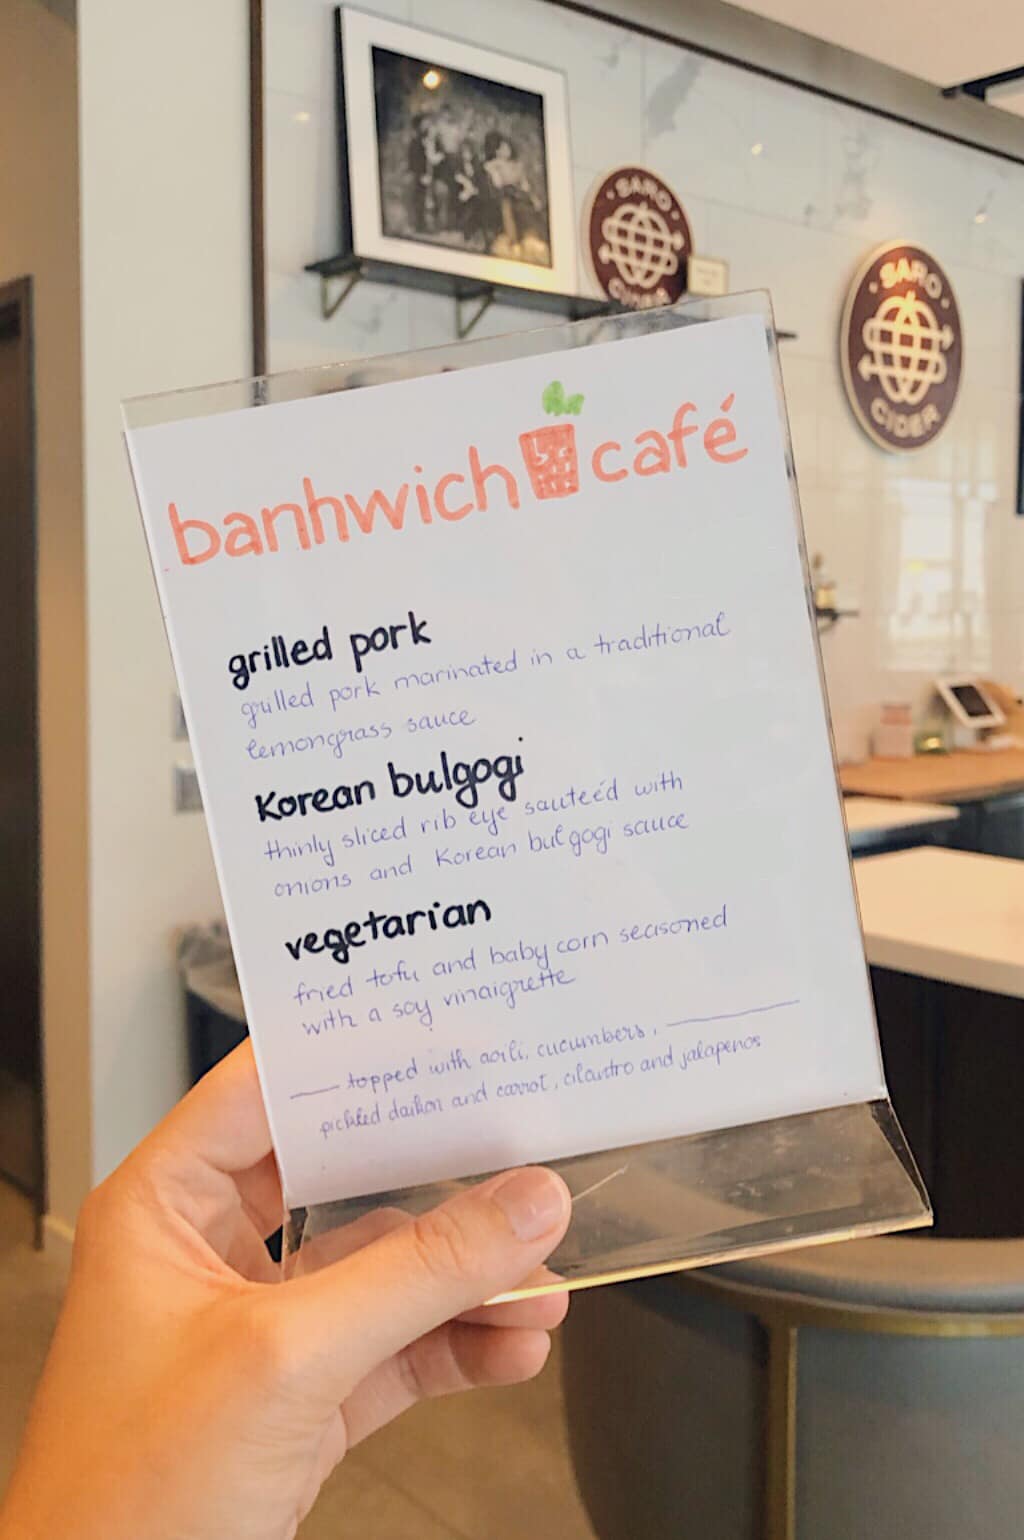 SARO
CIDER
SARO
CIDER
banhwich café
grilled pork
grilled pork marinated in a traditional
lemongrass sauce
Korean bulgogi
thinly sliced rib eye sauteéd with
onions and Korean bulgogi sauce
vegetarian
fried tofu and baby corn seasoned
with a soy vinaigrette
topped with aoili, cucumbers,
pickled daikon and carrot, cilantro and jalapenos